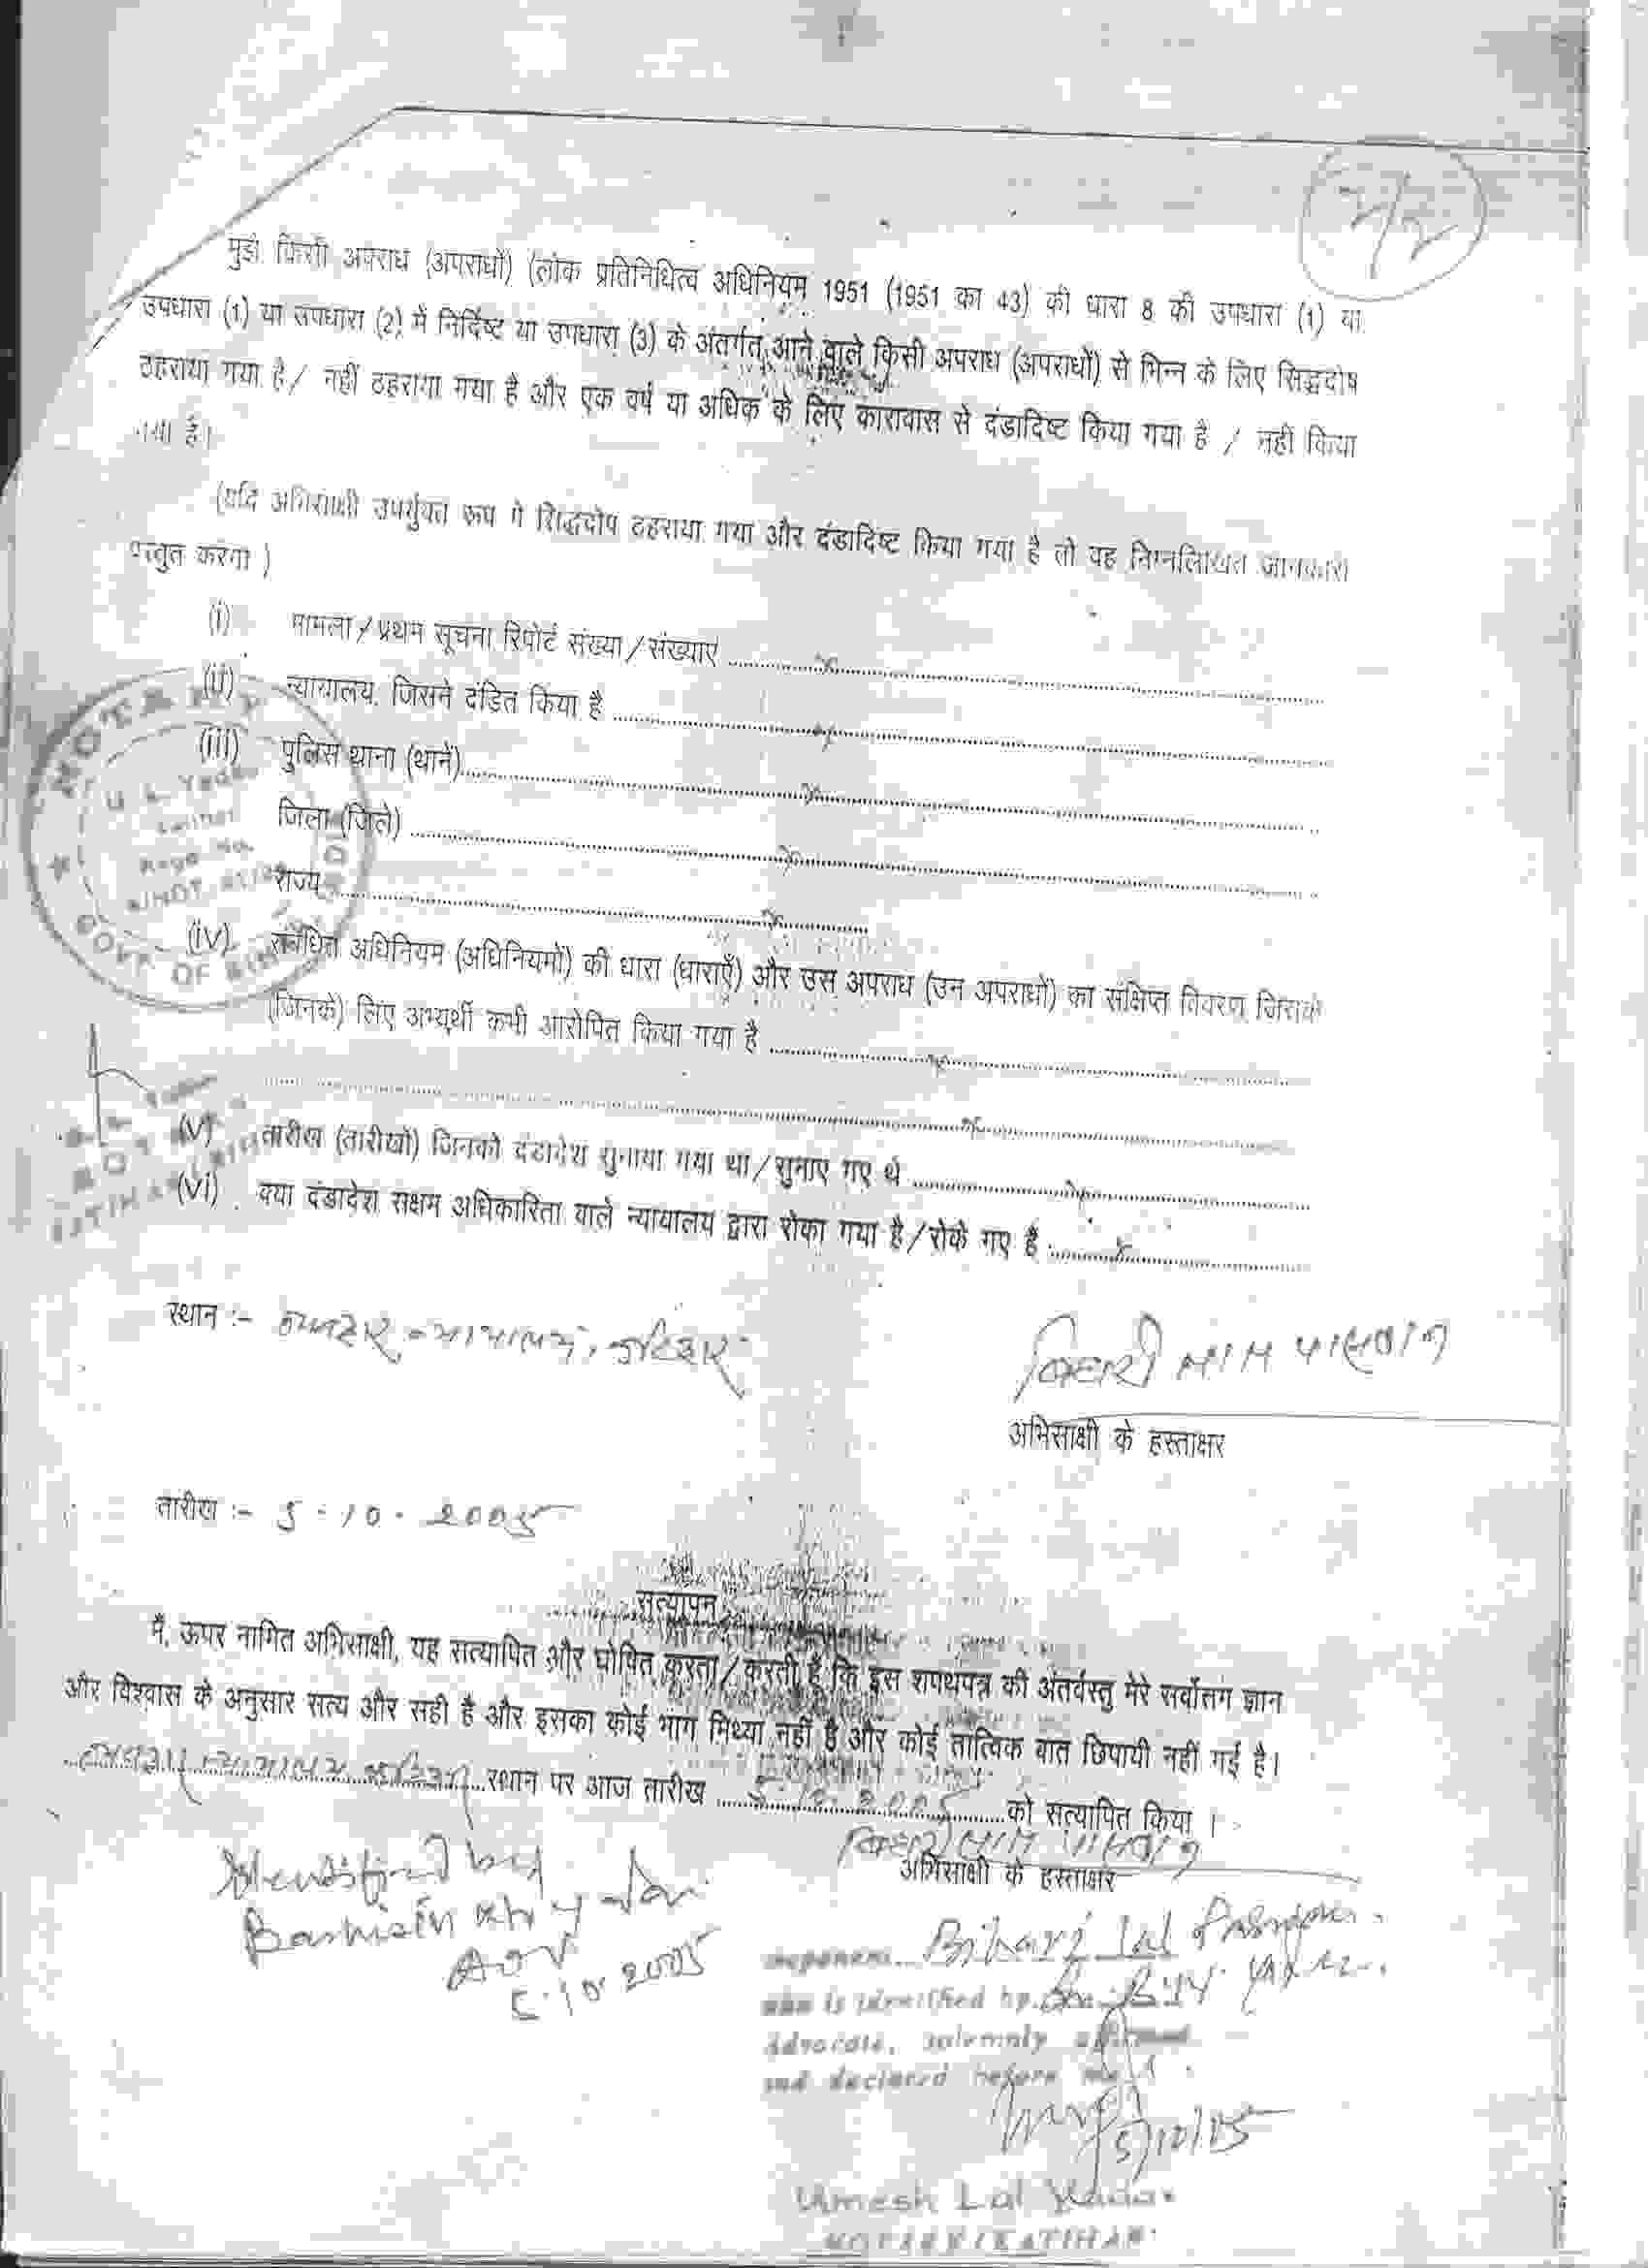 2/2
मुझे किसी अपराध (अपराधों) (लोक प्रतिनिधित्व अधिनियम 1951 (1951 का 43) की धारा 8 की उपधारा (1) या
उपधारा (1) या उपधारा (2) में निर्दिष्ट या उपधारा (3) के अंतर्गत आने वाले किसी अपराध (अपराधों) से भिन्न के लिए सिद्धदोष
ठहराया गया है / नहीं ठहराया गया है और एक वर्ष या अधिक के लिए कारावास से दंडादिष्ट किया गया है / नहीं किया
गया है।
(यदि अभिसाक्षी उपर्युक्त रूप में सिद्धदोष ठहराया गया और दंडादिष्ट किया गया है तो वह निम्नलिखित जानकारी
प्रस्तुत करेगा)
(i) मामला/प्रथम सूचना रिपोर्ट संख्या/संख्याएं x
(ii) न्यायालय, जिसने दंडित किया है x
(iii) पुलिस थाना (थाने) x
जिला (जिले) x
राज्य x
NOTARY
GOVT. OF
(iv) संबंधित अधिनियम (अधिनियमों) की धारा (धाराएँ) और उस अपराध (उन अपराधों) का संक्षिप्त विवरण जिसके
(जिनके) लिए अभ्यर्थी कभी आरोपित किया गया है x
x
(v) तारीख (तारीखों) जिनको दंडादेश सुनाया गया था/सुनाए गए थे x
(vi) क्या दंडादेश सक्षम अधिकारिता वाले न्यायालय द्वारा रोका गया है/रोके गए हैं x
स्थान :- व्यवहार न्यायालय, कटिहार
बिहारी लाल पासवान
अभिसाक्षी के हस्ताक्षर
तारीख :- 5-10-2005
सत्यापन
मैं, ऊपर नामित अभिसाक्षी, यह सत्यापित और घोषित करता/करती हूँ कि इस शपथपत्र की अंतर्वस्तु मेरे सर्वोत्तम ज्ञान
और विश्वास के अनुसार सत्य और सही है और इसका कोई भाग मिथ्या नहीं है और कोई तात्विक बात छिपायी नहीं गई है।
व्यवहार न्यायालय कटिहार स्थान पर आज तारीख 5-10-2005 को सत्यापित किया ।
बिहारी लाल पासवान
अभिसाक्षी के हस्ताक्षर
Identified by
Adv
5-10-2005
Deponent Bihari Lal Paswan
who is identified by
Advocate, solemnly affirmed
and declared before me
5/10/05
Umesh Lal Yadav
NOTARY KATIHAR